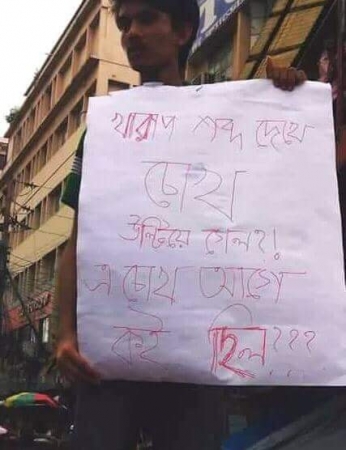 খারাপ শব্দ দেখে
চোখ
উল্টিয়ে গেল?!
এ চোখ আগে
কই ছিল???